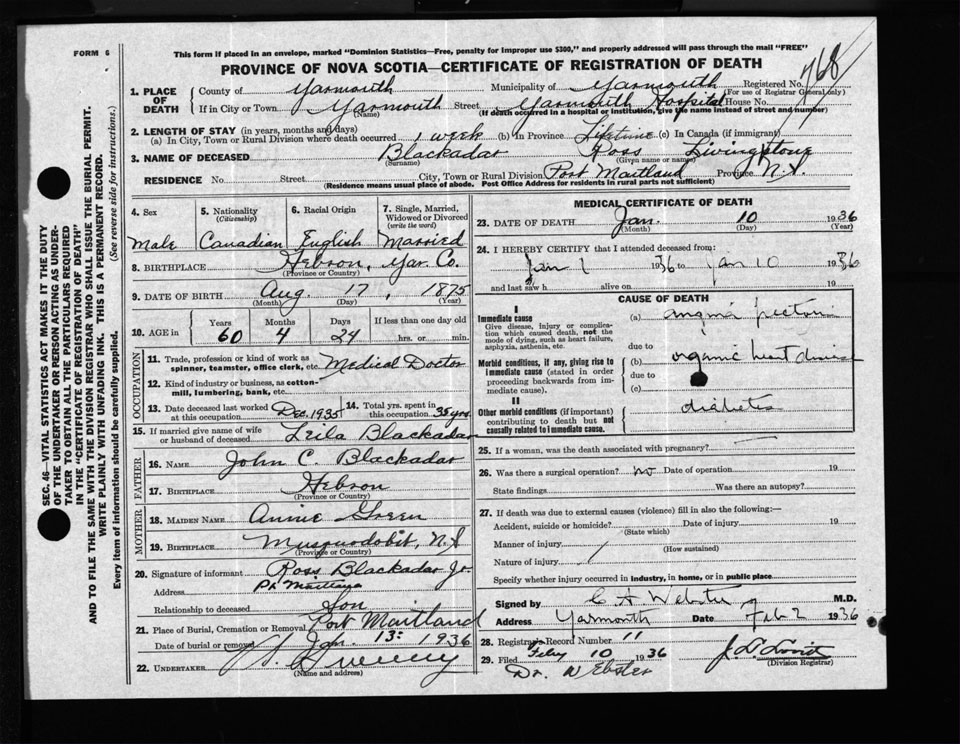 FORM 6
This form if placed in an envelope, marked "Dominion Statistics—Free, penalty for improper use $300," and properly addressed will pass through the mail "FREE"
PROVINCE OF NOVA SCOTIA—CERTIFICATE OF REGISTRATION OF DEATH
768
1. PLACE OF DEATH
County of Yarmouth Municipality of Yarmouth Registered No.
(For use of Registrar General only)
If in City or Town Yarmouth Street Yarmouth Hospital House No.
(Name) (If death occurred in a hospital or institution, give the name instead of street and number)
2. LENGTH OF STAY (in years, months and days)
(a) In City, Town or Rural Division where death occurred 1 week (b) In Province Lifetime (c) In Canada (if immigrant)
3. NAME OF DECEASED Blackadar Ross Livingstone
(Surname) (Given name or names)
RESIDENCE No. Street City, Town or Rural Division Port Maitland Province N.S.
(Residence means usual place of abode. Post Office Address for residents in rural parts not sufficient)
4. Sex Male
5. Nationality (Citizenship) Canadian
6. Racial Origin English
7. Single, Married, Widowed or Divorced (write the word) Married
8. BIRTHPLACE Hebron, Yar. Co.
(Province or Country)
9. DATE OF BIRTH Aug. 17, 1875
(Month) (Day) (Year)
10. AGE in Years 60 Months 4 Days 24 If less than one day old hrs. or min.
OCCUPATION
11. Trade, profession or kind of work as spinner, teamster, office clerk, etc. Medical Doctor
12. Kind of industry or business, as cotton-mill, lumbering, bank, etc.
13. Date deceased last worked at this occupation Dec. 1935
14. Total yrs. spent in this occupation 35 yrs.
15. If married give name of wife or husband of deceased Leila Blackadar
FATHER
16. NAME John C. Blackadar
17. BIRTHPLACE Hebron
(Province or Country)
MOTHER
18. MAIDEN NAME Annie Green
19. BIRTHPLACE Musquodobit, N.S
(Province or Country)
20. Signature of informant Ross Blackadar Jr.
Address Pt Maitland
Relationship to deceased Son
21. Place of Burial, Cremation or Removal Port Maitland
Date of burial or removal Jan. 13: 1936
22. UNDERTAKER
(Name and address)
MEDICAL CERTIFICATE OF DEATH
23. DATE OF DEATH Jan. 10 1936
(Month) (Day) (Year)
24. I HEREBY CERTIFY that I attended deceased from:
Jan 1 1936 to Jan 10 1936
and last saw h alive on 19
CAUSE OF DEATH
I
Immediate cause
Give disease, injury or complication which caused death, not the mode of dying, such as heart failure, asphyxia, asthenia, etc.
(a) angina pectoris
due to
Morbid conditions, if any, giving rise to immediate cause (stated in order proceeding backwards from immediate cause).
(b) organic heart disease
due to
(c)
II
Other morbid conditions (if important) contributing to death but not causally related to immediate cause.
diabetes
25. If a woman, was the death associated with pregnancy?
26. Was there a surgical operation? no Date of operation 19
State findings Was there an autopsy?
27. If death was due to external causes (violence) fill in also the following:—
Accident, suicide or homicide? Date of injury 19
(State which)
Manner of injury
(How sustained)
Nature of injury
Specify whether injury occurred in industry, in home, or in public place
Signed by C A Webster M.D.
Address Yarmouth Date Feb 2 1936
28. Registrar's Record Number 11
29. Filed Feby 10 1936
(Division Registrar)
Dr. Webster
SEC. 46—VITAL STATISTICS ACT MAKES IT THE DUTY
OF THE UNDERTAKER OR PERSON ACTING AS UNDER-
TAKER TO OBTAIN ALL THE PARTICULARS REQUIRED
IN THE "CERTIFICATE OF REGISTRATION OF DEATH"
AND TO FILE THE SAME WITH THE DIVISION REGISTRAR WHO SHALL ISSUE THE BURIAL PERMIT.
WRITE PLAINLY WITH UNFADING INK. THIS IS A PERMANENT RECORD.
Every item of information should be carefully supplied. (See reverse side for instructions.)